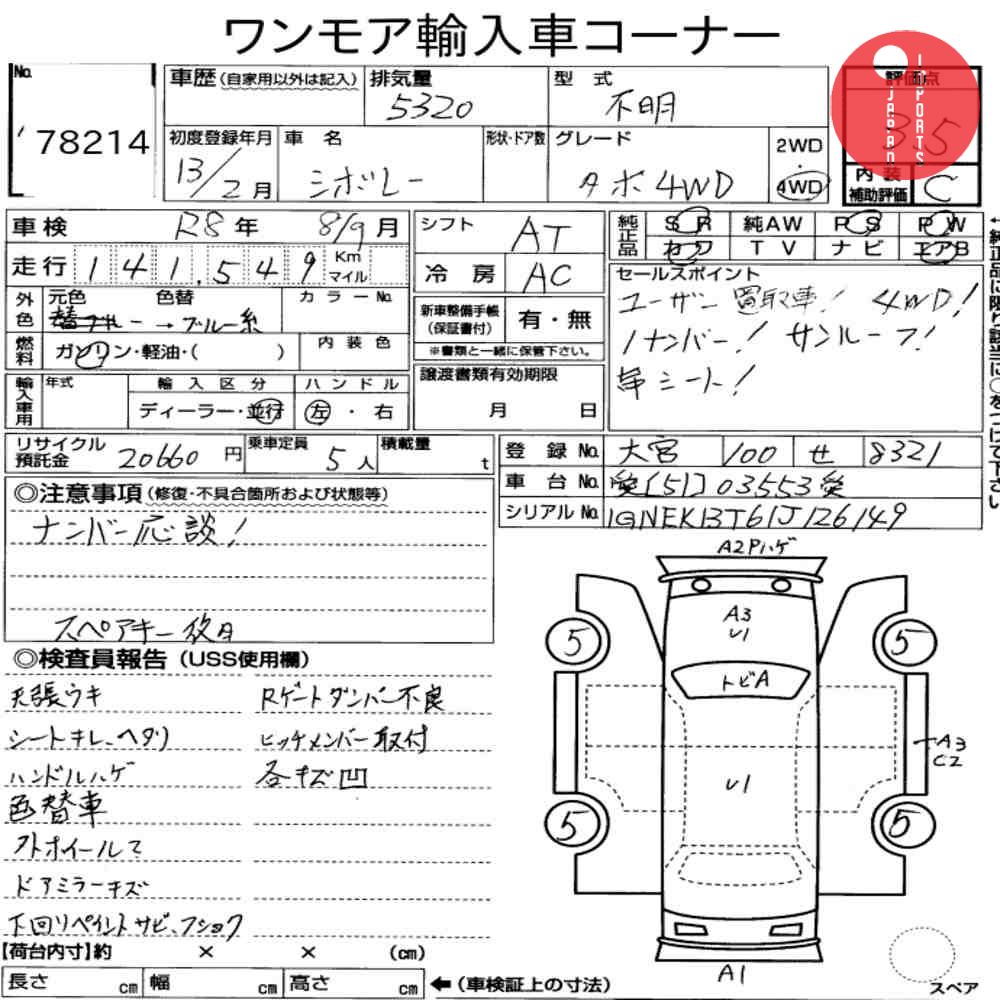 ワンモア輸入車コーナー
No. 78214
車歴(自家用以外は記入) 排気量 5320 型式 不明
初度登録年月 13/2月 車名 シボレー 形状・ドア数 グレード タホ4WD 2WD・4WD
評価点 3.5
JAPAN IMPORTS
内装補助評価 C
車検 R8年 8/9月
走行 141,549 Km マイル
外色 元色 色替 カラーNo.
ブルー→ブルー系
燃料 ガソリン・軽油・( ) 内装色
輸入車用 年式 輸入区分 ハンドル
ディーラー・並行 左・右
シフト AT
冷房 AC
新車整備手帳(保証書付) 有・無
※書類と一緒に保管下さい。
譲渡書類有効期限
月 日
純正品 SR 純AW PS PW
カワ TV ナビ エアB
セールスポイント
ユーザー買取車! 4WD!
1ナンバー! サンルーフ!
革シート!
←純正品に限り該当に○をつけて下さい
リサイクル預託金 20660円 乗車定員 5人 積載量 t
登録No. 大宮 100 せ 8321
車台No. [51]03553
シリアルNo. 1GNEK13T61J126149
◎注意事項(修復・不具合箇所および状態等)
ナンバー応談!
スペアキー 枚目
◎検査員報告(USS使用欄)
天張ウキ Rゲートダンパー不良
シートキレ、ヘタリ ヒッチメンバー取付
ハンドルハゲ 各キズ凹
色替車
外ホイールて
ドアミラーキズ
下回リペイントサビ、フショク
【荷台内寸】約 × × (cm)
長さ cm 幅 cm 高さ cm ←(車検証上の寸法)
A2Pハゲ
A3
U1
トビA
5
5
A3
C2
U1
5
5
A1
スペア